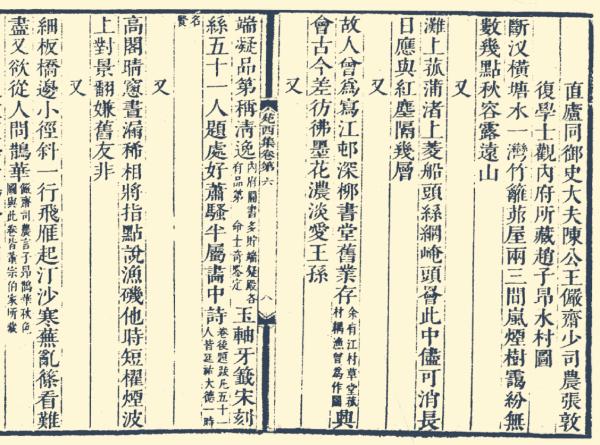 直廬同御史大夫陳公王儼齋少司農張敦
復學士觀內府所藏趙子昂水村圖
斷汊橫塘水一灣竹籬茆屋兩三間嵐煙樹靄紛無
數幾點秋容露遠山
又
灘上菰蒲渚上菱船頭絲網崦頭罾此中儘可消長
日應與紅塵隔幾層
又
故人曾為寫江邨深柳書堂舊業存余有江村草堂菰村耦漁曾為作圖興
會古今差彷彿墨花濃淡愛王孫
又
苑西集卷第六 八
端凝品第稱清逸內府圖書多貯端凝殿各有品第 命士奇鑒定玉軸牙籤宋刻
絲五十一人題處好蕭騷半屬畵中詩卷後題跋凡五十一人皆延祐大德一時
名賢 又
高閣晴窓晝漏稀相將指點說漁磯他時短櫂煙波
上對景翻嫌舊友非
又
細板橋邊小徑斜一行飛雁起汀沙寒蕪亂篠看難
盡又欲從人問鵲華儼齋司農言子昂鵲華秋色圖與此卷皆董宗伯家所藏